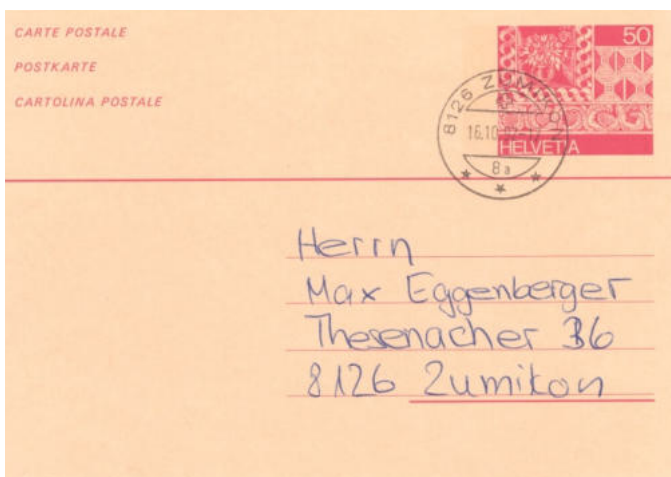 CARTE POSTALE
POSTKARTE
CARTOLINA POSTALE
50
8126 ZUMIKON
16.10
8a
HELVETIA
Herrn
Max Eggenberger
Thesenacher 36
8126 Zumikon